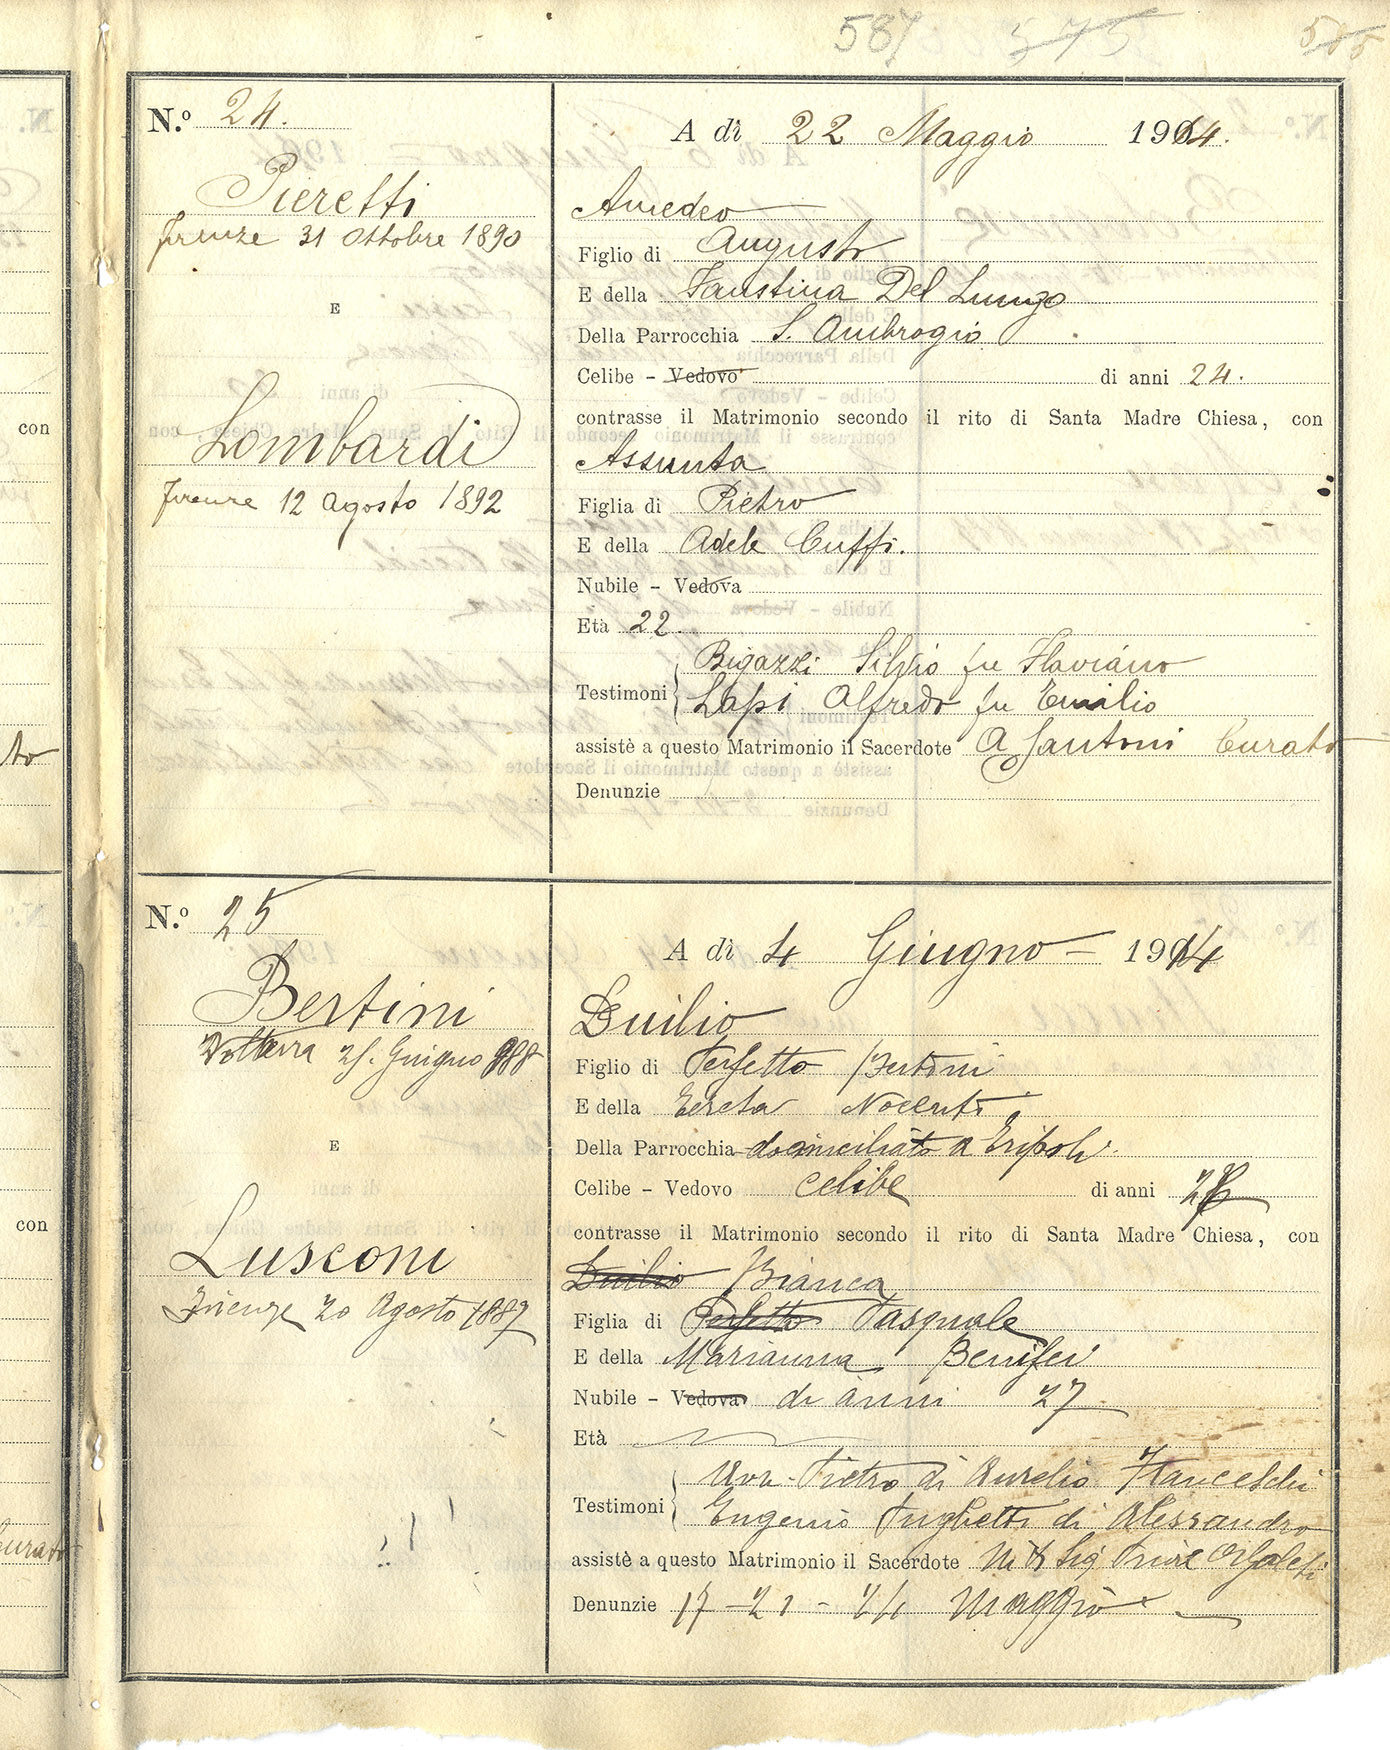 587 575 585
N.º 24.
Pieretti
Firenze 31 Ottobre 1890
E
Lombardi
Firenze 12 Agosto 1892
A dì 22 Maggio 1914.
Amedeo
Figlio di Augusto
E della Faustina Del Lungo
Della Parrocchia S. Ambrogio
Celibe - Vedovo di anni 24.
contrasse il Matrimonio secondo il rito di Santa Madre Chiesa, con
Assunta
Figlia di Pietro
E della Adele Ciuffi.
Nubile - Vedova
Età 22.
Bigazzi Silvio fu Flaviano
Testimoni
Lapi Alfredo fu Emilio
assistè a questo Matrimonio il Sacerdote A Santoni Curato
Denunzie
N.º 25
Bertini
Volterra 25. Giugno 888
E
Lusconi
Firenze 20 Agosto 1887
A dì 4 Giugno - 1914
Duilio
Figlio di Perfetto Bertini
E della
Della Parrocchia domiciliato a Ripoli
Celibe - Vedovo celibe di anni
contrasse il Matrimonio secondo il rito di Santa Madre Chiesa, con
Duilio Bianca
Figlia di Perfetto Pasquale
E della Marianna
Nubile - Vedova di anni 27
Età
Pietro di Aurelio Franceschi
Testimoni
Eugenio di Alessandro
assistè a questo Matrimonio il Sacerdote
Denunzie 17 - 21 - 24 Maggio
con
to
con
urato